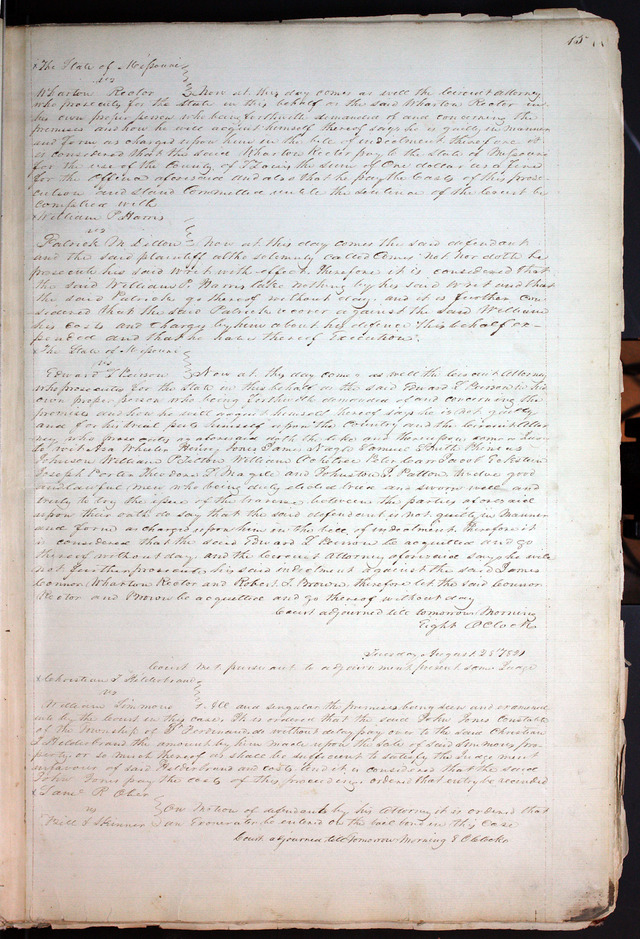 15
The State of Missouri
vs
Wharton Rector Now at this day comes as well the Circuit Attorney
who prosecutes for the State in this behalf as the said Wharton Rector in
his own proper person who being forthwith demanded of and concerning the
premises and how he will acquit himself thereof says he is guilty in manner
and form as charged upon him in the bill of indictment therefore it
is considered that the said Wharton Rector pay to the State of Missouri
for the use of the County of the sum of one dollar as a fine
for the offence aforesaid and also that he pay the Costs of this prose-
cution and stand Committed until the sentence of the Court be
Complied with
William P. Harris
vs
Patrick M. Dillon Now at this day comes the said defendant
and the said plaintiff altho solemnly called Comes not nor doth he
prosecute his said writ with effect. Therefore it is considered that
the said William P. Harris take nothing by his said writ and that
the said Patrick go thereof without day. and it is further con-
sidered that the said Patrick recover against the said William
his Costs and Charges by him about his defence this behalf ex-
pended and that he have thereof Execution.
The State of Missouri
vs
Edward T. Now at this day comes as well the Circuit Attorney
who prosecutes for the State in this behalf as the said Edward T. in his
own proper person who being forthwith demanded of and concerning the
premises and how he will acquit himself thereof says he is not guilty
and for his trial puts himself upon the Country and the Circuit Attor-
ney who prosecutes as aforesaid doth the like and thereupon came a Jury
to wit Asa Wheeler Henry Jones James Nagle Samuel Smith
Johnson William P. William Jacob
Theodore L. and Johnston J. Patton twelve good
and lawful men who being duly elected tried and sworn well and
truly to try the issue of the traverse between the parties aforesaid
upon their oath do say that the said defendant is not guilty in Manner
and form as charged upon him in the bill of indictment. Therefore it
is considered that the said Edward T. be acquitted and go
thereof without day and the Circuit Attorney aforesaid says he will
not further prosecute his said indictment against the said James
Connor Wharton Rector and Robert T. Brown. therefore let the said Connor
Rector and Brown be acquitted and go thereof without day
Court adjourned till tomorrow Morning
Eight OClock
Tuesday August 28th 1821
Court met pursuant to adjournment present same Judge
Christian T. Hilderbrand
vs
William Simmons All and singular the premises being seen and examined
into by the Court in this case. It is ordered that the said John Jones Constable
of the Township of St Ferdinand do without delay pay over to the said Christian
T. Hilderbrand the amount by him made upon the Sale of said Simmons pro-
perty, or so much thereof as shall be sufficient to satisfy the Judgement
in favour of said Hilderbrand and costs and it is considered that the said
John Jones pay the costs of this proceeding. ordered that entry be recorded
Saml R. Ober
vs
Hill & Skinner On Motion of defendants by his Attorney it is ordered that
an Exoneratur be entered on the bail bond in this Case
Court adjourned till Tomorrow Morning 8 OClock